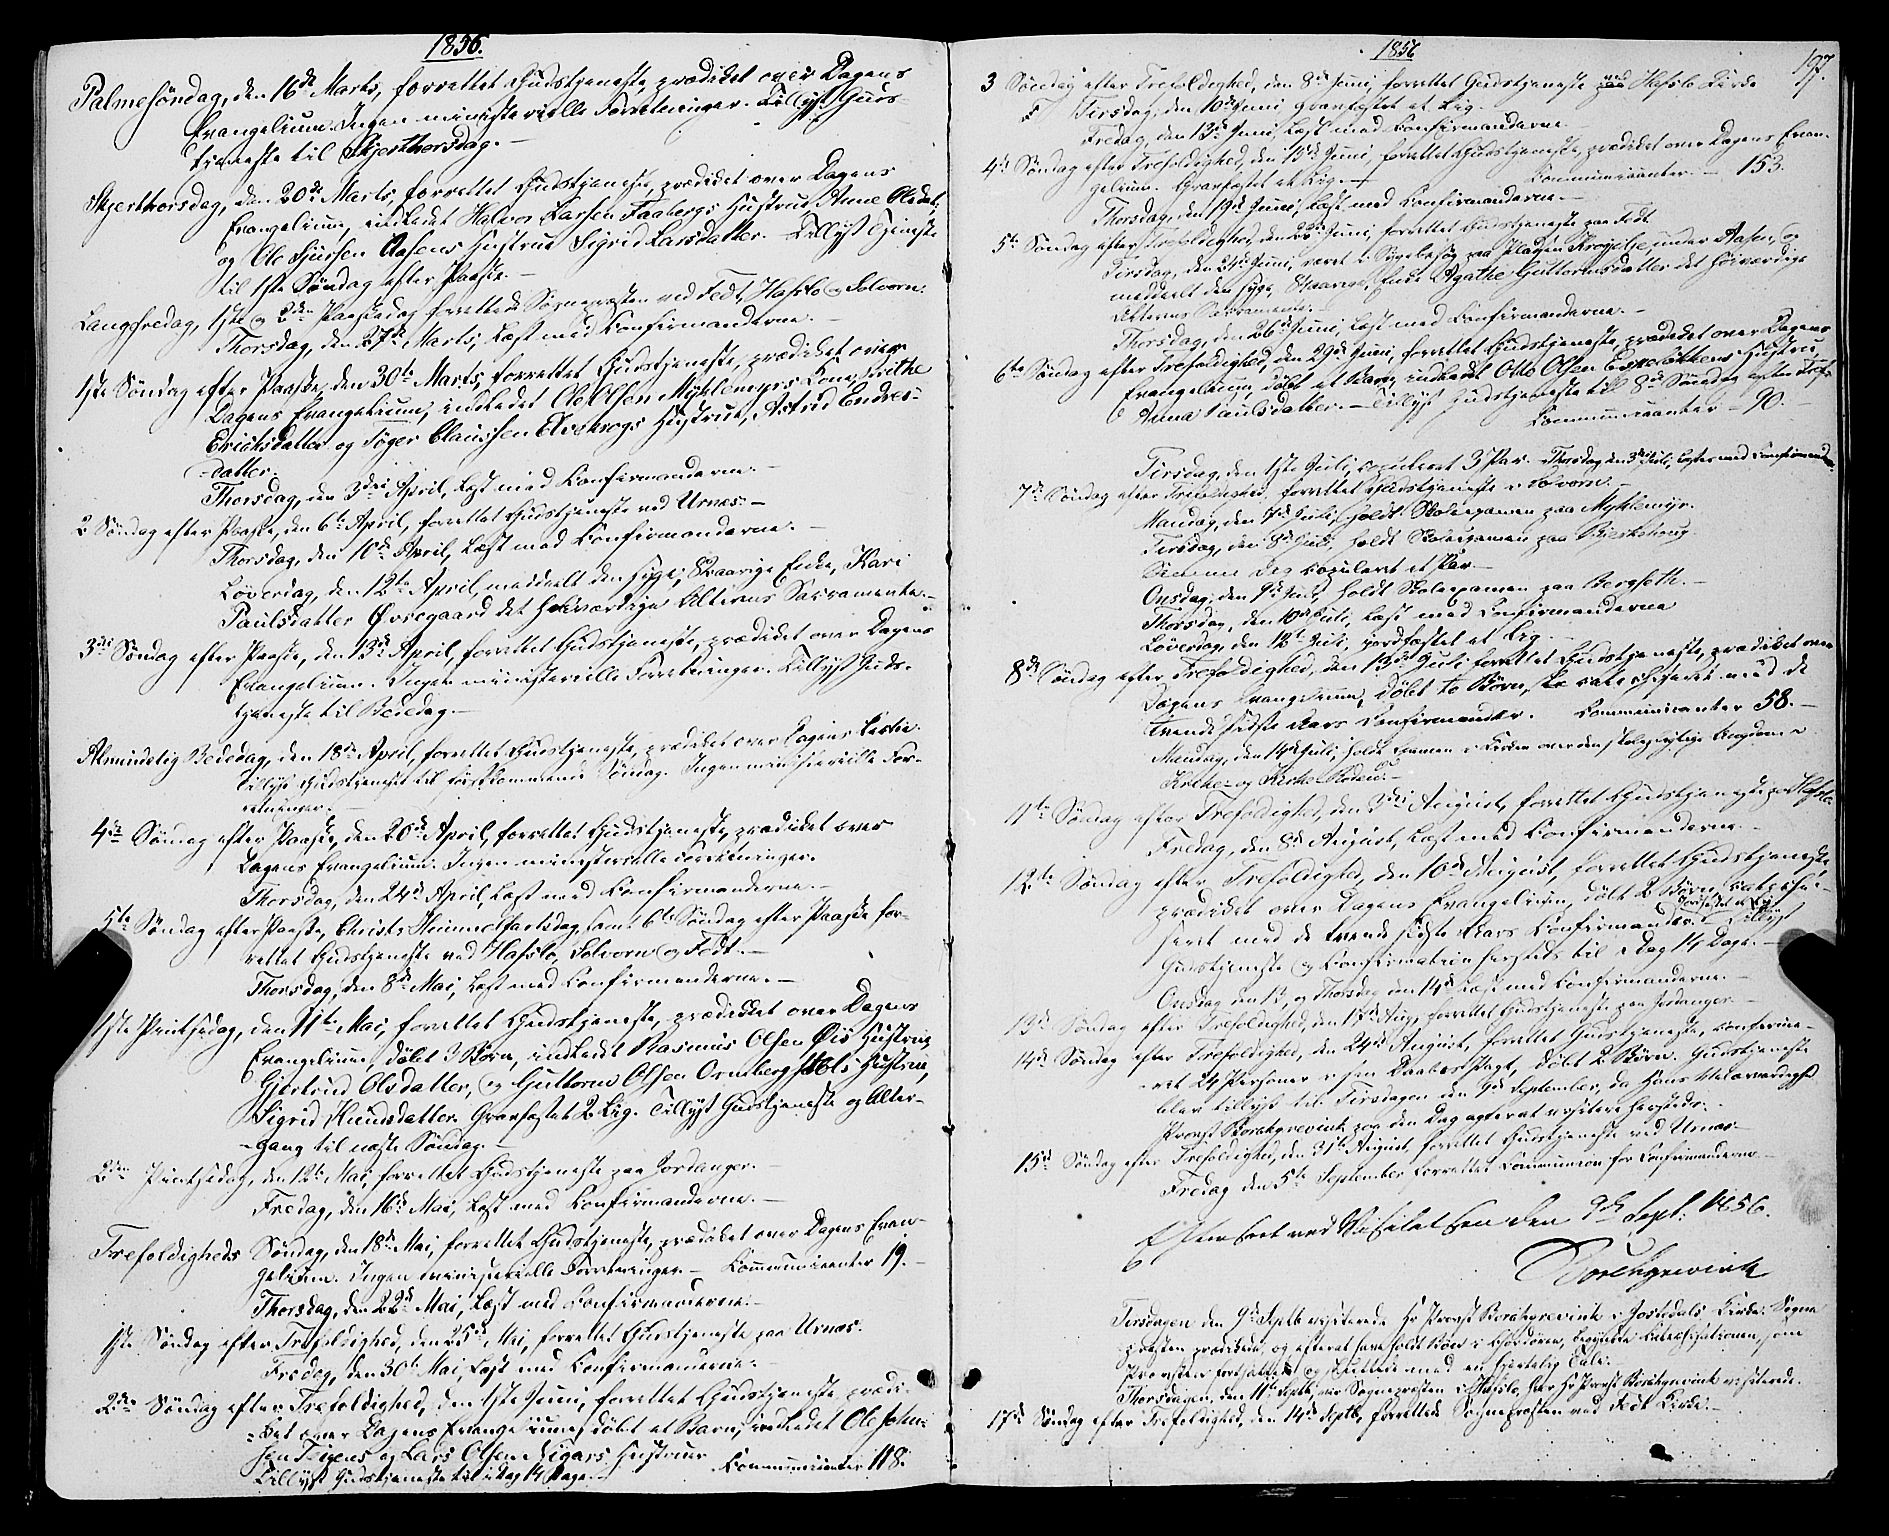 1856.
Palmesöndag, den 16de Marts, forrettet Gudstjeneste, prædiket over Dagens
Evangelium. Ingen ministerielle Forretninger. Tillyst Guds-
tjeneste til Skjerthorsdag.
Skjerthorsdag, den 20de Marts, forrettet Gudstjeneste, prædiket over Dagens
Evangelium, indledet Halvor Larsen Faabergs Hustrue Anne Olsdat.,
og Ole Sjursen Aasens Hustrue Sigrid Larsdatter. Tillyst Tjeneste
til 1ste Söndag efter Paaske.
Langfredag, 1ste og 2den Paaskedag forrettede Sognepresten ved Fedt, Hafslo og Solvorn.
Thorsdag, den 27de Marts, læst med Confirmanderne.
1ste Söndag efter Paaske, den 30te Marts, forrettet Gudstjeneste, prædiket over
Dagens Evangelium, indledet Ole Olsen Myklemyrs Kone, Brithe
Erichsdatter og Töger Claussen Elvekrogs Hustrue, Astrid Endres-
datter.
Thorsdag, den 3die April, læst med Confirmanderne.
2 Söndag efter Paaske, den 6te April, forrettet Gudstjeneste ved Urnes.
Thorsdag, den 10de April, læst med Confirmanderne.
Löverdag, den 12te April, meddeelt den syge, 82aarige Enke, Kari
Paulsdatter Øvregaard det höiværdige Alterens Sacramente.
3die Söndag efter Paaske, den 13de April, forrettet Gudstjeneste, prædiket over Dagens
Evangelium. Ingen ministerielle Forretninger. Tillyst Guds-
tjeneste til Bededag.
Almindelig Bededag, den 18de April, forrettet Gudstjeneste, prædiket over Dagens Lectie.
Tillyst Gudstjeneste til förstkommende Söndag. Ingen ministerielle For-
retninger.
4de Söndag efter Paaske, den 20de April, forrettet Gudstjeneste, prædiket over
Dagens Evangelium. Ingen ministerielle Forretninger.
Thorsdag, den 24de April, læst med Confirmanderne.
5te Söndag efter Paaske, Christi Himmelfartsdag, samt 6te Söndag efter Paaske for-
rettet Gudstjeneste ved Hafslo, Solvorn og Fedt.
Thorsdag, den 8de Mai, læst med Confirmanderne.
1ste Pintsedag, den 11te Mai, forrettet Gudstjeneste, prædiket over Dagens
Evangelium, döbt 3 Börn, indledt Rasmus Olsen Øis Hustrue
Gjertrud Olsdatter, og Guttorm Olsen Ormberg Hustrue,
Sigrid Knudsdatter. Gravfæstet 2 Lig. Tillyst Gudstjeneste og Alter-
gang til næste Söndag.
2den Pintsedag, den 12te Mai, forrettet Gudstjeneste paa Jordanger.
Fredag, den 16de Mai, læst med Confirmanderne.
Trefoldigheds Söndag, den 18de Mai, forrettet Gudstjeneste, prædiket over Dagens Evan-
gelium. Ingen ministerielle Forretninger. Communicanter 19.
Thorsdag, den 22de Mai, læst med Confirmanderne.
1ste Söndag efter Trefoldighed, den 25de Mai, forrettet Gudstjeneste paa Urnæs.
Fredag, den 30te Mai, læst med Confirmanderne.
2den Söndag efter Trefoldighed, den 1ste Juni, forrettet Gudstjeneste, prædi-
ket over Dagens Evangelium, döbt et Barn, indledet Ole John-
sen Teigens og Lars Olsen Nigars Hustruer
Tillyst Gudstjeneste til idag 14 Dage. Communicanter 118.
1856
197.
3 Söndag efter Trefoldighed, den 8de Juni, forrettet Gudstjeneste ved Hafslo Kirke
Tirsdag, den 10de Juni gravfæstet et Lig.
Fredag, den 13de Juni, læst med Confirmanderne.
4de Söndag efter Trefoldighed, den 15de Juni, forrettet Gudstjeneste, prædiket over Dagens Evan-
gelium. Gravfæstet et Lig. Communicanter - 153.
Thorsdag, den 19de Juni, læst med Confirmanderne.
5te Söndag efter Trefoldighed, den 22de Juni, forrettet Gudstjeneste paa Fedt
Tirsdag, den 24de Juni, været i Sognebesög paa Pladsen Krogelie, under Aasen, og
meddeelt den syge, Enke Agathe Guttormsdatter det höiværdige
Alterens Sacramente.
Thorsdag, den 26de Juni, læst med Confirmanderne.
6te Söndag efter Trefoldighed, den 29de Juni, forrettet Gudstjeneste, prædiket over Dagens
Evangelium, döbt et Barn, indledt Otto Olsen Hustrue
Anna Paulsdatter. Tillyst Gudstjeneste til 8de Söndag efter Tref.
Communicanter - 90.
Tirsdag, den 1ste Juli, copuleret 3 Par. Thorsdag den 3die Juli, læst med Confirmander.
7de Söndag efter Trefoldighed, forrettet Gudstjeneste i Solvorn.
Mandag, den 7de Juli, holdt Skoleexamen paa Myklemyr.
Tirsdag, den 8de Juli, holdt Skoleexamen paa Bjerkehoug.
Samme Dag copuleret et Par.
Onsdag, den 9de Juli, holdt Skoleexamen paa Bergseth.
Thorsdag, den 10de Juli, læst med Confirmanderne
Löverdag, den 12te Juli, jordfæstet et Lig.
8de Söndag efter Trefoldighed, den 13de Juli forrettet Gudstjeneste, prædiket over
Dagens Evangelium, döbt to Börn, catechiseret med de
trende sidste Aars Confirmander. Communicanter 58.
Mandag, den 14de Juli, holdt Examen i Kirken over den skolepligtige Ungdom i
Kirke- og Roden.
11te Söndag efter Trefoldighed, den 3die August, forrettet Gudstjeneste i Hafslo.
Fredag, den 8de August, læst med Confirmanderne.
12te Söndag efter Trefoldighed, den 10de August, forrettet Gudstjeneste,
prædiket over Dagens Evangelium, döbt 2 Börn, catechi-
seret med de trende sidste Aars Confirmander. Jordfæstet et Lig. Tillyst
Gudstjeneste og Confirmation hersteds til i Dag 14 Dage.
Onsdag den 13, og Thorsdag den 14de læst med Confirmanderne.
13de Söndag efter Trefoldighed, den 17de Aug. forrettet Gudstjeneste paa Jordanger.
14de Söndag efter Trefoldighed, den 24de August, forrettet Gudstjeneste, confirme-
ret 24 Personer i sin Daabes Pagt, döbt 2 Börn. Gudstjeneste
blev tillyst til Tirsdagen den 9de September, da Hans Velærværdighed
Provst Borchgrevink paa den Dag agter at visitere hersteds.
15de Söndag efter Trefoldighed, den 31te August, forrettet Gudstjeneste ved Urnæs.
Fredag den 5te September forrettet Communion for Confirmanderne.
Efterseet ved Visitatsen den 9de Sept. 1856.
Borchgrevink
Tirsdagen den 9de Septb. visiterede Hr. Provst Borchgrevink i Jostedals Kirke: Sogne-
presten prædikede, og efterat have holdt Bön i Chordören, begyndte Catechisationen, som
Provsten fortsatte og sluttede med en hjertelig Tale.
Thorsdagen, den 11te Septb. var Sognepresten i Hafslo, hvor Hr. Provst Borchgrevink visiterede.
17de Söndag efter Trefoldighed, den 14de Septb. forrettede Sognepresten ved Fedt Kirke.